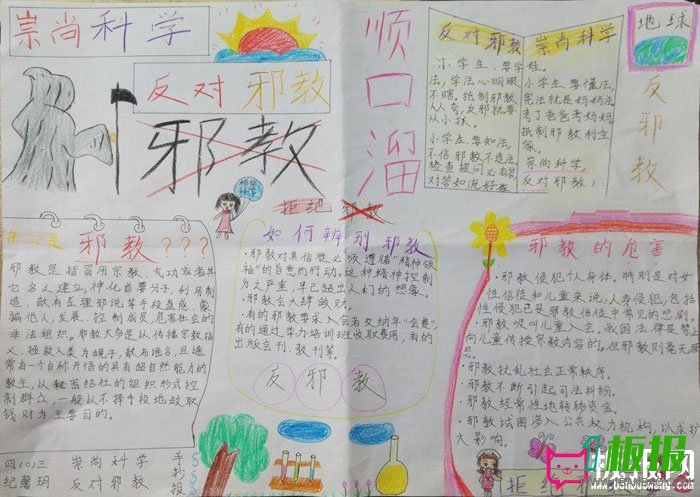 崇尚科学
反对邪教
邪教
顺口溜
反对邪教 崇尚科学
小学生、要学法,
法,学法心明眼
不瞎。抵制邪教
人人夸,反邪就要
从小抓。
小学生、要知法,
不信邪教不违法
检查提问必有答
对答如流好
小学生、要懂法,
宪法就是妈妈法
考了爸爸考妈妈
抵制邪教利全
家。
崇尚科学,
反对邪教!
地球
反邪教
拒绝邪教
什么是邪教???
邪教是指冒用宗教、气功或者其
它名义建立,神化首要分子,利用制
造、散布歪理邪说等手段蛊惑、蒙
骗他人,发展、控制成员,危害社会的
非法组织。邪教大多是以传播宗教指
义、拯救人类为幌子,散布谣言,且通
常有一个自称开悟的具有超自然能力的
教主,以秘密结社的组织形式控
制群众,一般以不择手段地敛取
钱财为主要目的。
如何辨别邪教
·邪教对其信徒必须遵循“精神领
袖”的旨意而行动,这种精神控制
为之严重,早已超出人们的想象。
·邪教会大肆敛财。
·有的邪教要求入会者交纳年“会费”,
有的通过举力培训班收取费用,有的
出版会刊、教刊等。
反邪教
邪教的危害
·邪教侵犯个人身体。特别是对女
性信徒和儿童来说,人身侵犯,包括
性侵犯已是邪教信徒中常见的悲剧。
·邪教吸收儿童入会,我国法律是禁止
向儿童传授宗教内容的。但邪教则毫无顾
·邪教扰乱社会正常秩序。
·邪教不断引起司法纠纷。
·邪教经常性地转移资金。
·邪教试图渗入公共权力机构,以求扩
大影响。
四(0)三
纪馨玥
崇尚科学
反对邪教
手抄报
SSSS
拒绝
板报网
www.banbaowang.com